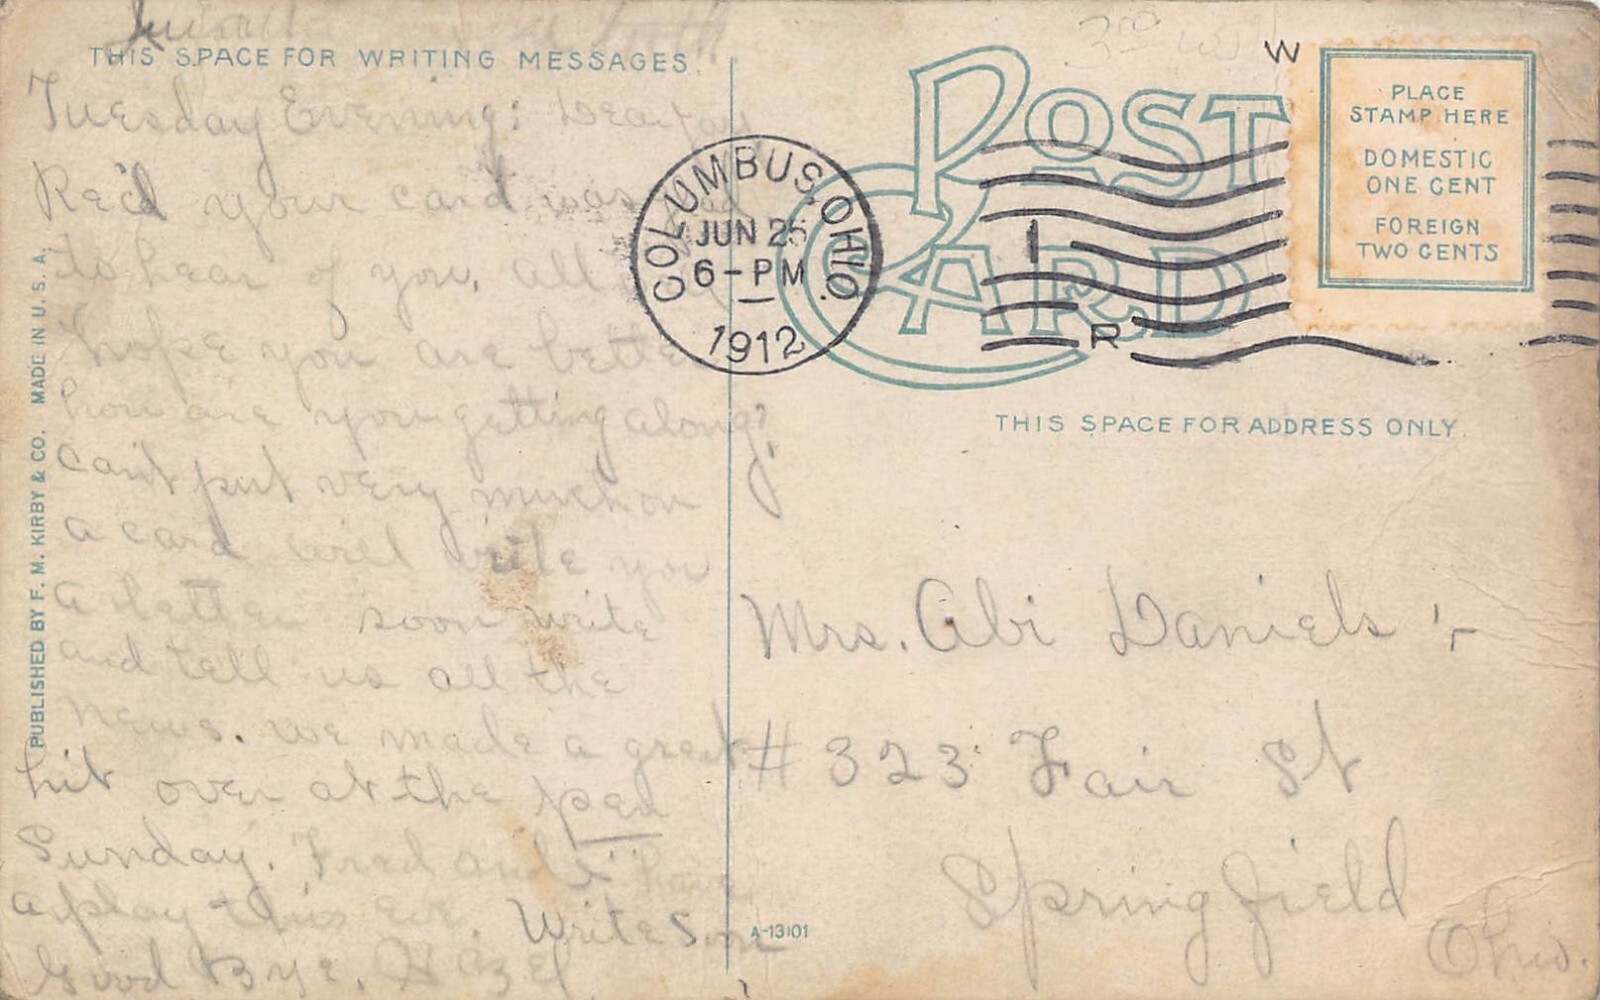 THIS SPACE FOR WRITING MESSAGES.
Tuesday Evening: Dear
Rec'd your card was
to hear of you, all
hope you are better
how are you getting along?
can't put very much on
a card will write you
a letter soon write
and tell us all the
news. we made a great
hit over at the pen
Sunday. Fred and I have
a play this eve. Write Soon
Good Bye. Hazel
PUBLISHED BY F. M. KIRBY & CO. MADE IN U. S. A.
A-13101
POST CARD
COLUMBUS, OHIO.
JUN 25
6-PM
1912
1
R
W
PLACE
STAMP HERE
DOMESTIC
ONE CENT
FOREIGN
TWO CENTS
THIS SPACE FOR ADDRESS ONLY.
Mrs. Abi Daniels
# 323 Fair St
Springfield
Ohio.